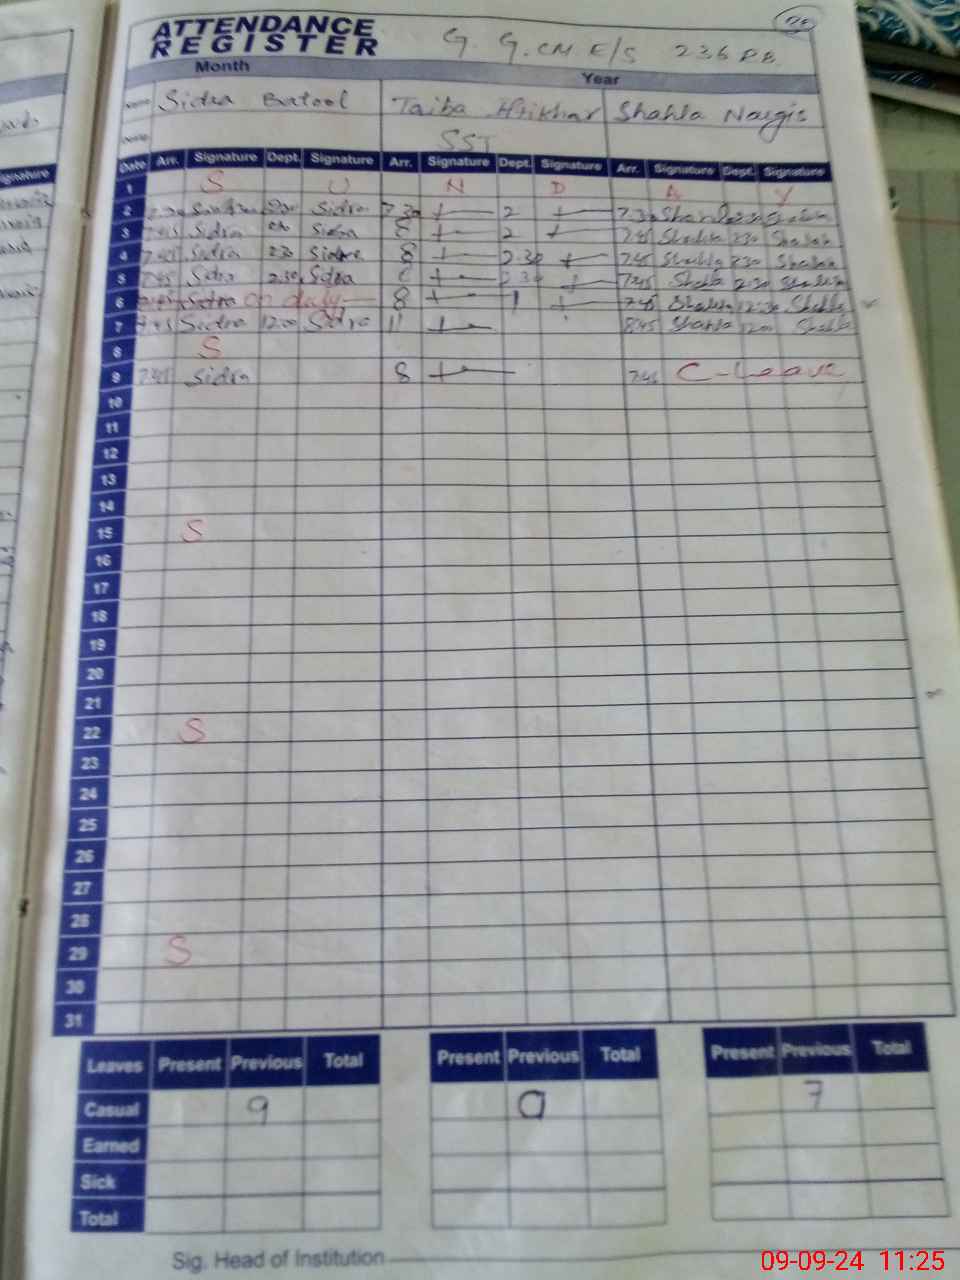 ATTENDANCE
REGISTER
G. G.CM E/S 236 P.B.
Month Year
Name Sidra Batool Taiba Iftikhar Shahla Nargis
SST
Date Arr. Signature Dept. Signature Arr. Signature Dept. Signature Arr. Signature Dept. Signature
1 S U N D A Y
2 7.30 Sidra 7.30 2 7.30 Shahla 2.30
3 7.45 Sidra Sidra 8 2 7.45 Shahla 2.30 Shahla
4 7.45 Sidra 2.30 Sidra 8 2.30 7.45 Shahla 2.30 Shahla
5 7.45 Sidra 2.30 Sidra 8 2.30 7.45 Shahla 2.30 Shahla
6 7.45 Sidra on duty 8 1 7.45 Shahla 12:30 Shahla
7 7.45 Sidra 12.00 Sidra 11 8.45 Shahla 12.00 Shahla
8 S
9 7.45 Sidra 8 7.45 C-Leave
10
11
12
13
14
15 S
16
17
18
19
20
21
22 S
23
24
25
26
27
28
29 S
30
31
Leaves Present Previous Total Present Previous Total Present Previous Total
Casual 9 7
Earned
Sick
Total
Sig. Head of Institution
09-09-24 11:25